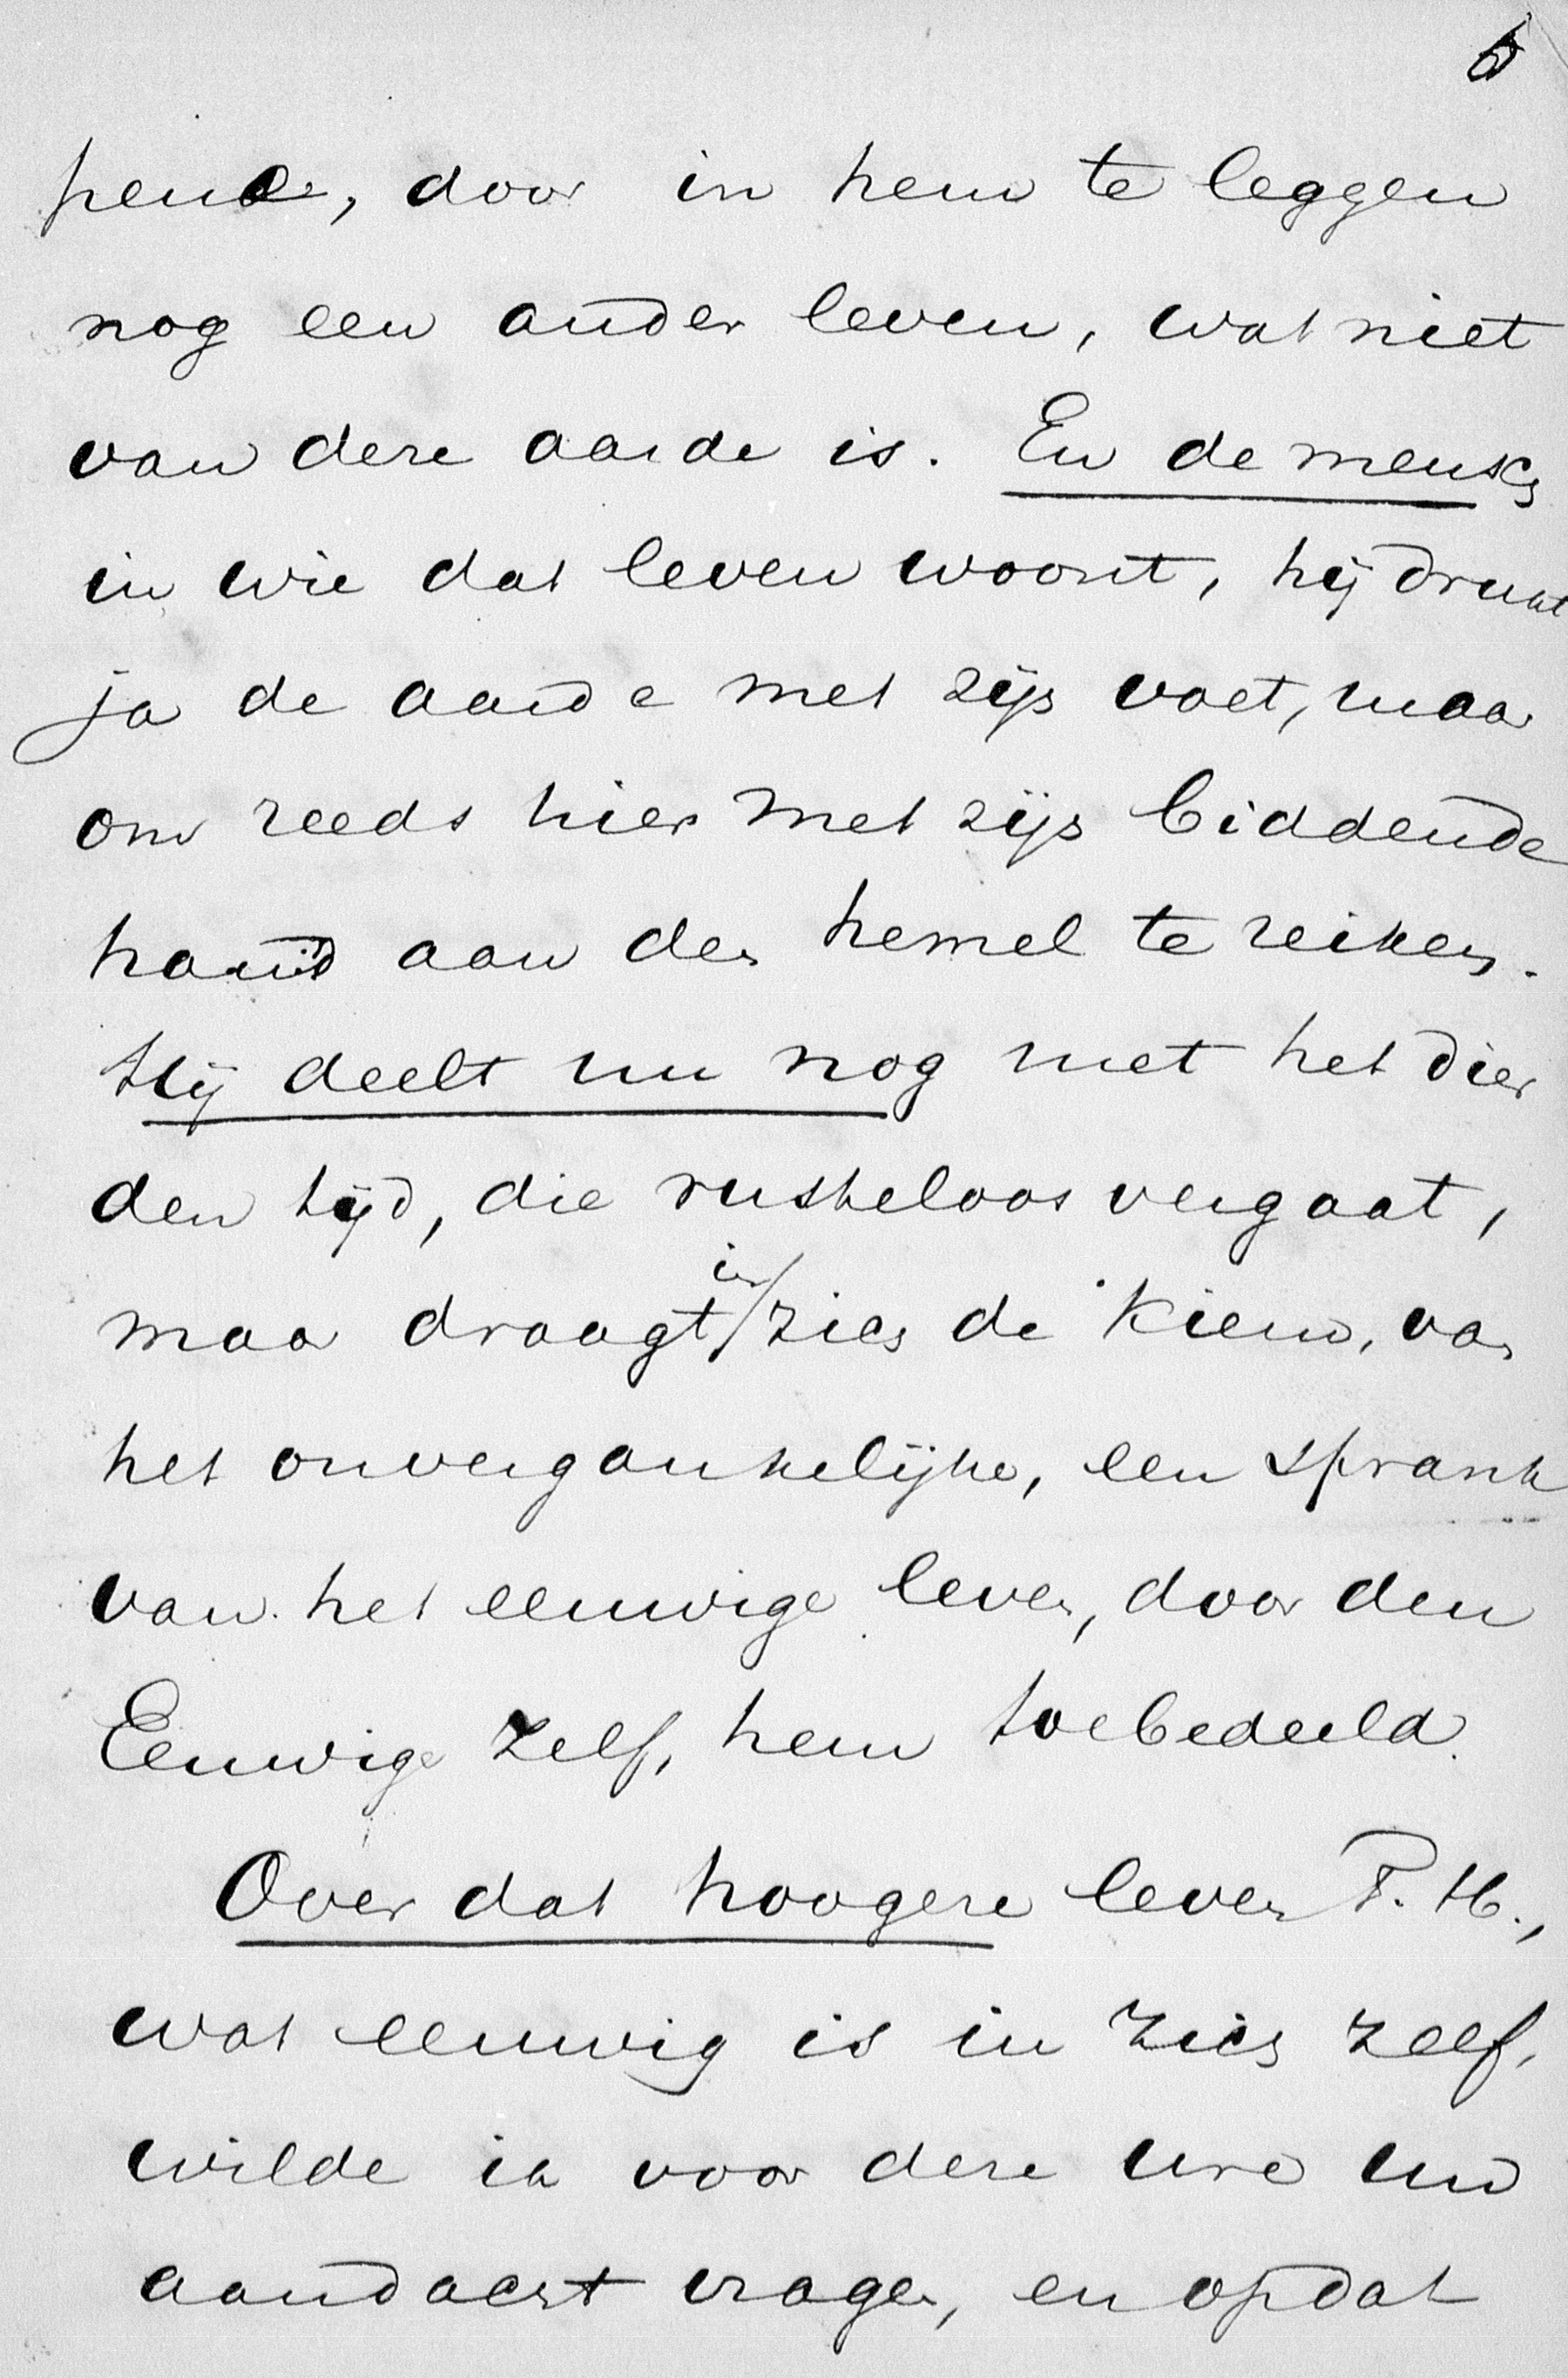 6
pend, door in hem te leggen
nog een ander leven, wat niet
van deze aarde is. En de mensch
in wie dat leven woont, hij drukt
ja de aarde met zijn voet, maar
om reeds hier met zijn biddende
hand aan den hemel te reiken.
Hij deelt nu nog met het dier
den tijd, die rusteloos vergaat,
maar draagt in zich de kiem, van
het onvergankelijke, een sprank
van het eeuwige leven, door den
Eeuwige zelf, hem toebedeeld.
Over dat hoogere leven T. H.,
wat eeuwig is in zich zelf,
wilde ik voor deze ure uw
aandacht vragen, en opdat